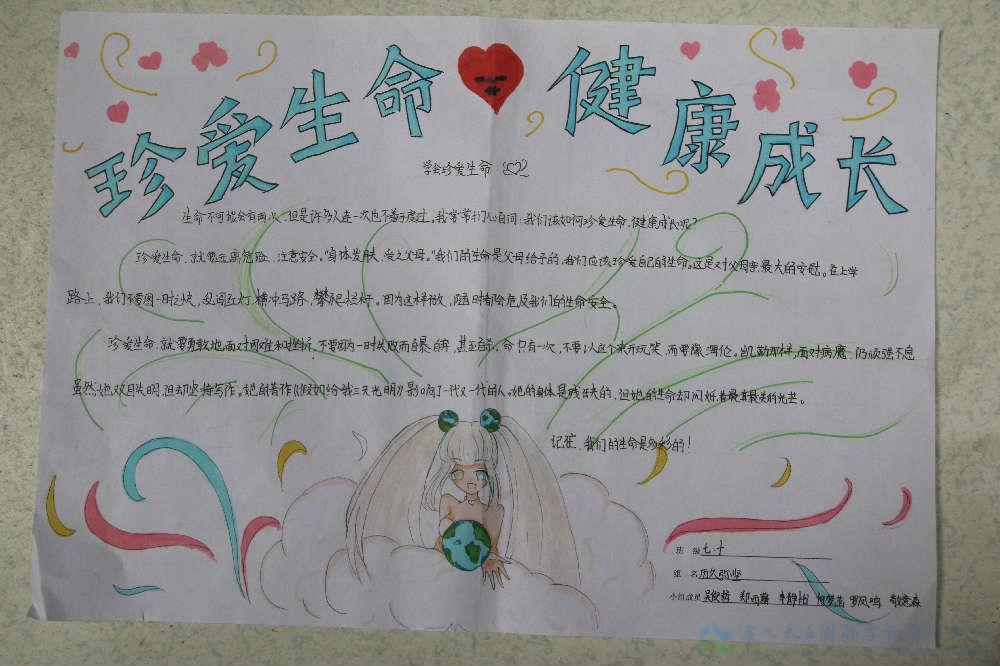 珍爱生命 健康成长
学会珍爱生命
生命不可能会有两次,但是许多人连一次也不善于度过。我常常扪心自问:我们该如何珍爱生命,健康成长呢?
珍爱生命,就要远离危险、注意安全。"身体发肤、受之父母。"我们的生命是父母给予的,我们应该珍爱自己的生命。这是对父母亲最大的安慰。在上学
路上,我们不要因一时之快,乱闯红灯,横冲马路、攀爬栏杆。因为这样做,随时都会危及我们的生命安全。
珍爱生命,就要勇敢地面对困难和挫折,不要因为一时失败而自暴自弃,甚至自杀。命只有一次,不要以这个来开玩笑,而要像海伦。凯勒那样,面对病魔,仍顽强不息
虽然,她双目失明,但却坚持写作。她的著作《假如给我三天光明》影响了一代又一代的人。她的身体是残缺的,但她的生命却闪烁着最真最美的光芒。
记住,我们的生命是多彩的!
班 级 七.十
组 名 历久弥坚
小组成员